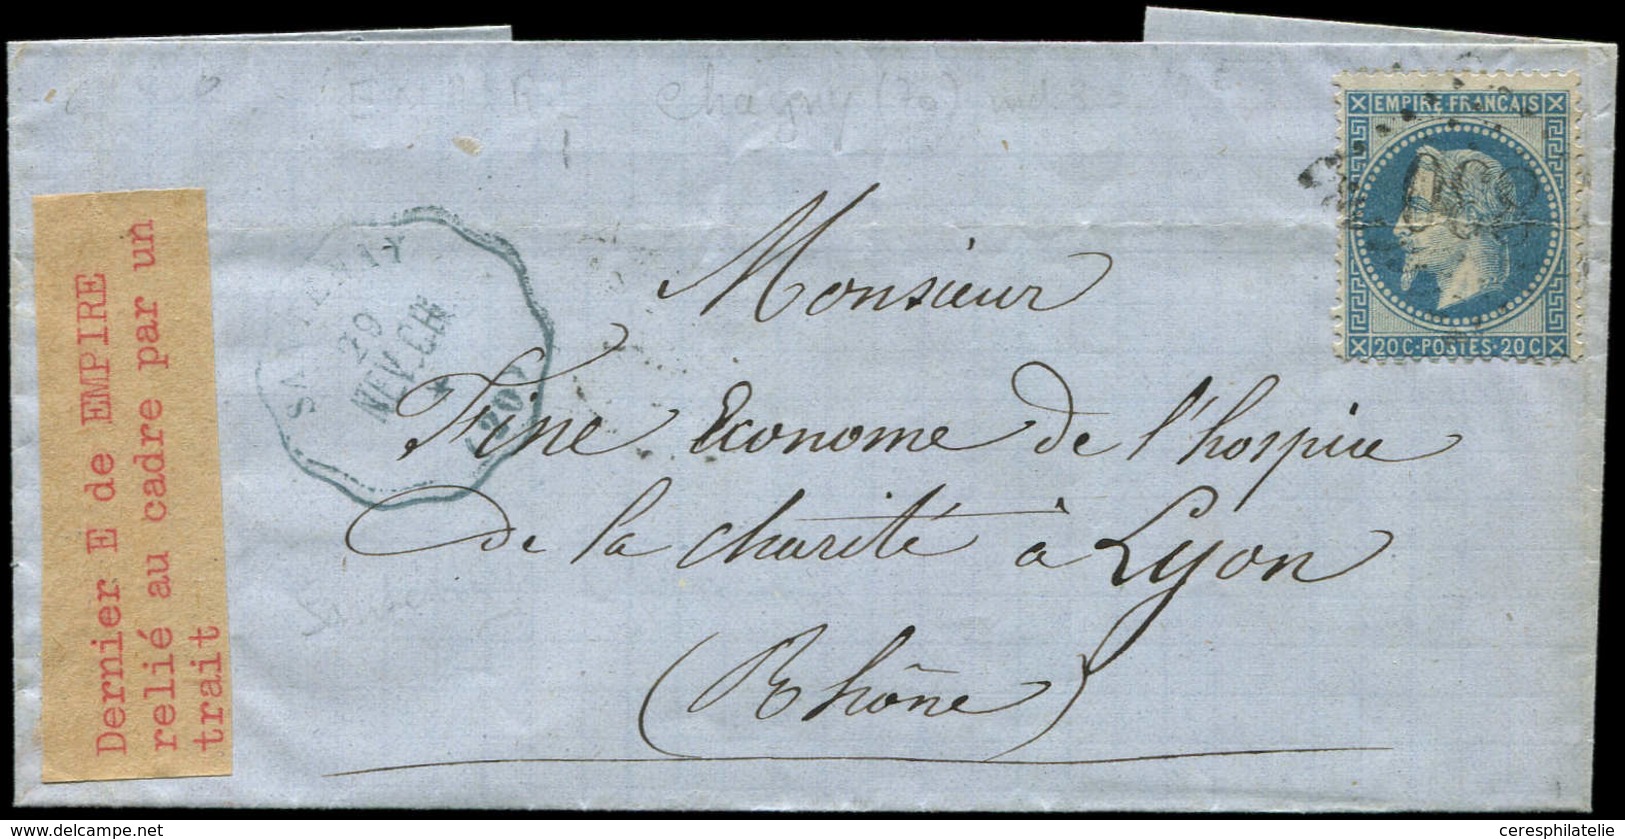 Chagny (70) ind
EMPIRE FRANCAIS
20 C · POSTES · 20 C
880
29
NEV.CH
(20)
Monsieur
Fine Econome de l'hospice
de la charité à Lyon
(Rhône)
Dernier E de EMPIRE
relié au cadre par un
trait
www.delcampe.net
ceresphilatelie